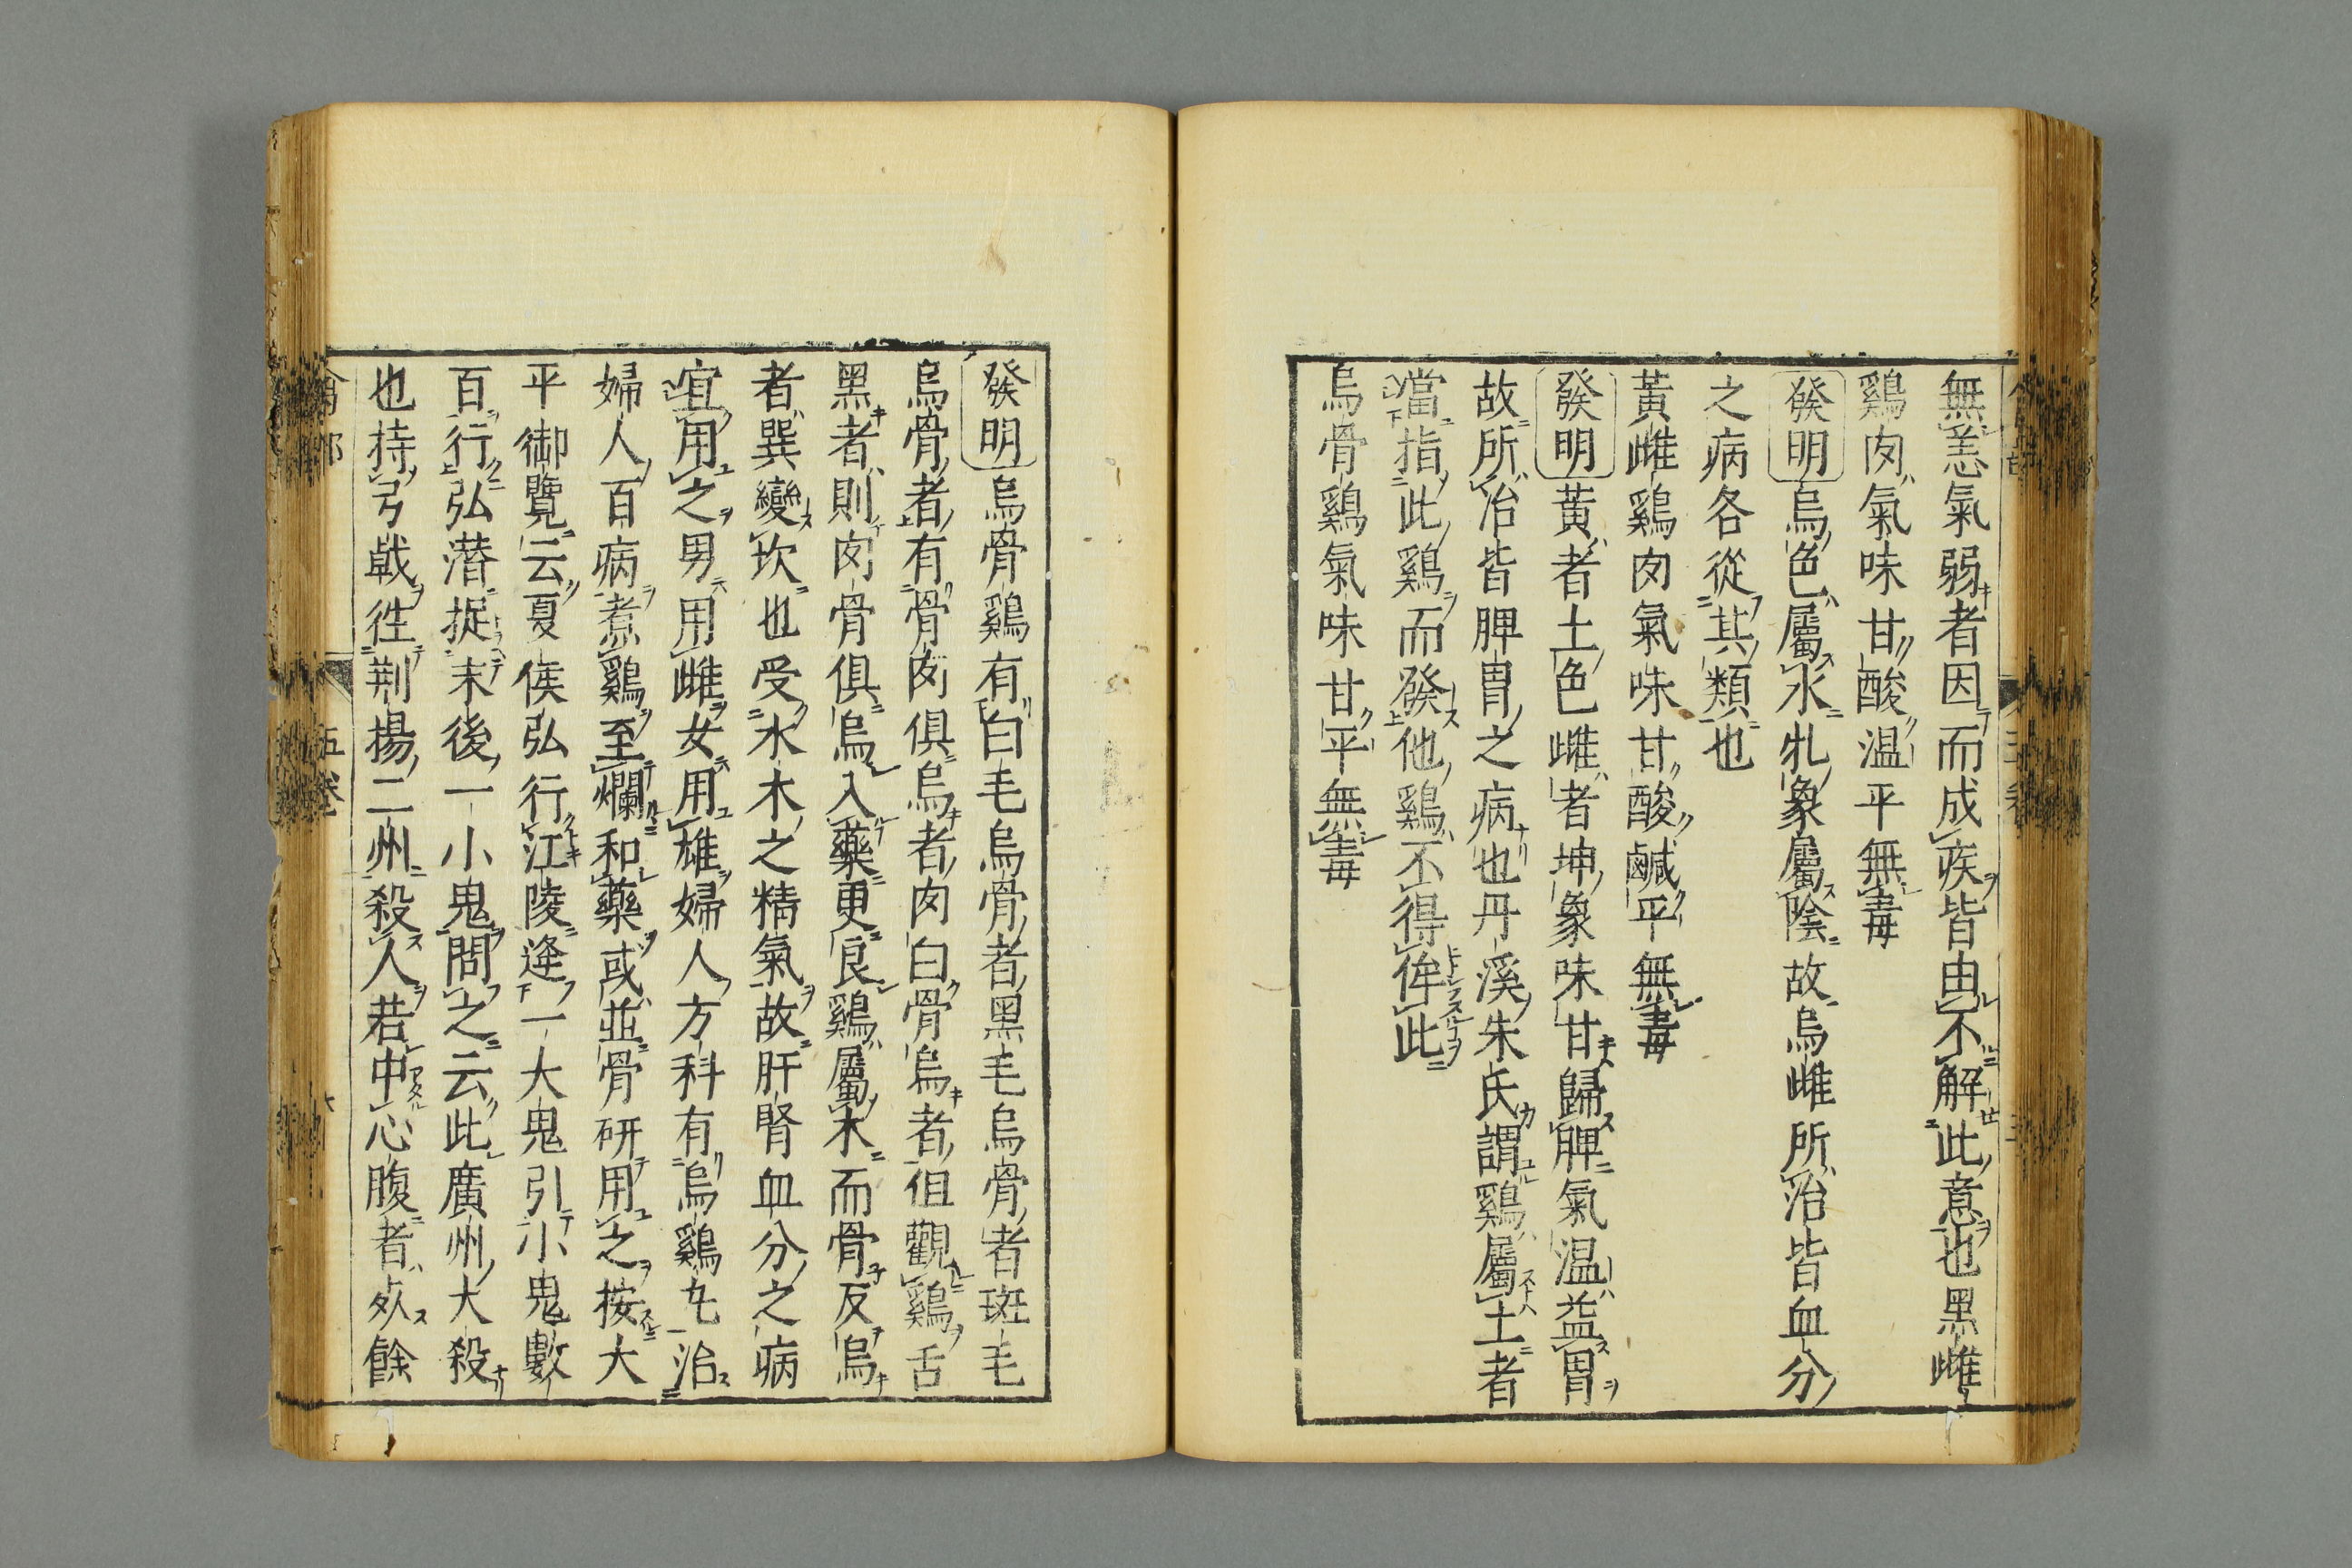 無恙氣弱者因而成疾皆由不解此意也黑雌
鷄肉氣味甘酸温平無毒
發明烏色屬水牝象屬陰故烏雌所治皆血分
之病各從其類也
黃雌鷄肉氣味甘酸鹹平無毒
發明黃者土色雌者坤象味甘歸脾氣温益胃
故所治皆脾胃之病也丹溪朱氏謂鷄屬土者
當指此鷄而發他鷄不得侔此
烏骨鷄氣味甘平無毒
發明烏骨鷄有白毛烏骨者黑毛烏骨者斑毛
烏骨者有骨肉俱烏者肉白骨烏者但觀鷄舌
黑者則肉骨俱烏入藥更良鷄屬木而骨反烏
者巽變坎也受水木之精氣故肝腎血分之病
宜用之男用雌女用雄婦人方科有烏鷄丸治
婦人百病煮鷄至爛和藥或並骨研用之按大
平御覽云夏侯弘行江陵逢一大鬼引小鬼數
百行弘潜捉末後一小鬼問之云此廣州大殺
也持弓戟徃荆揚二州殺人若中心腹者死餘
五卷